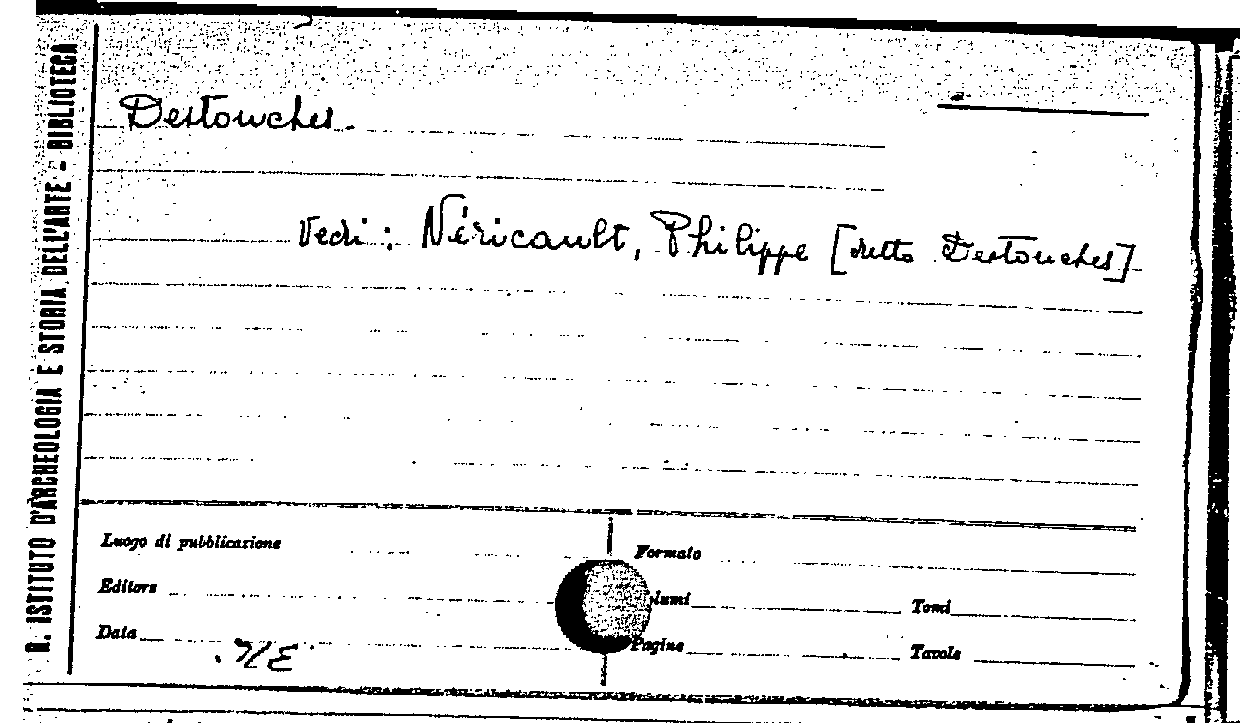 R. ISTITUTO D'ARCHEOLOGIA E STORIA DELL'ARTE - BIBLIOTECA
Destouches.
Vedi: Néricault, Philippe [detto Destouches]
Luogo di pubblicazione
Formato
Editore
lumi
Tomi
Data
Pagine
Tavole